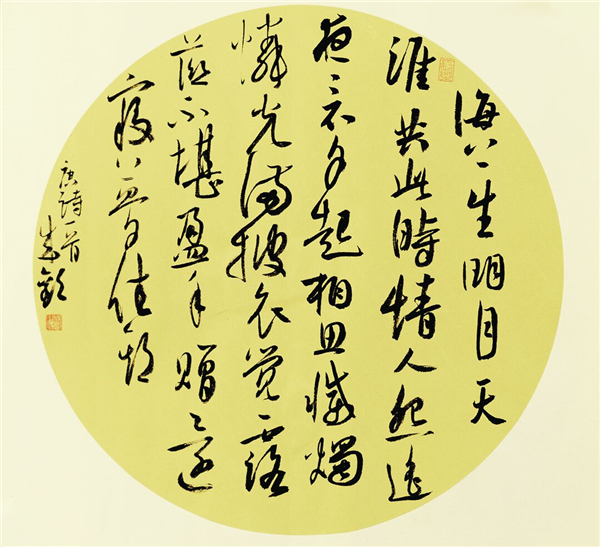 海上生明月天
涯共此時情人怨遙
夜竟夕起相思滅燭
憐光滿披衣覺露
滋不堪盈手贈還
寢夢佳期
唐詩一首
朱